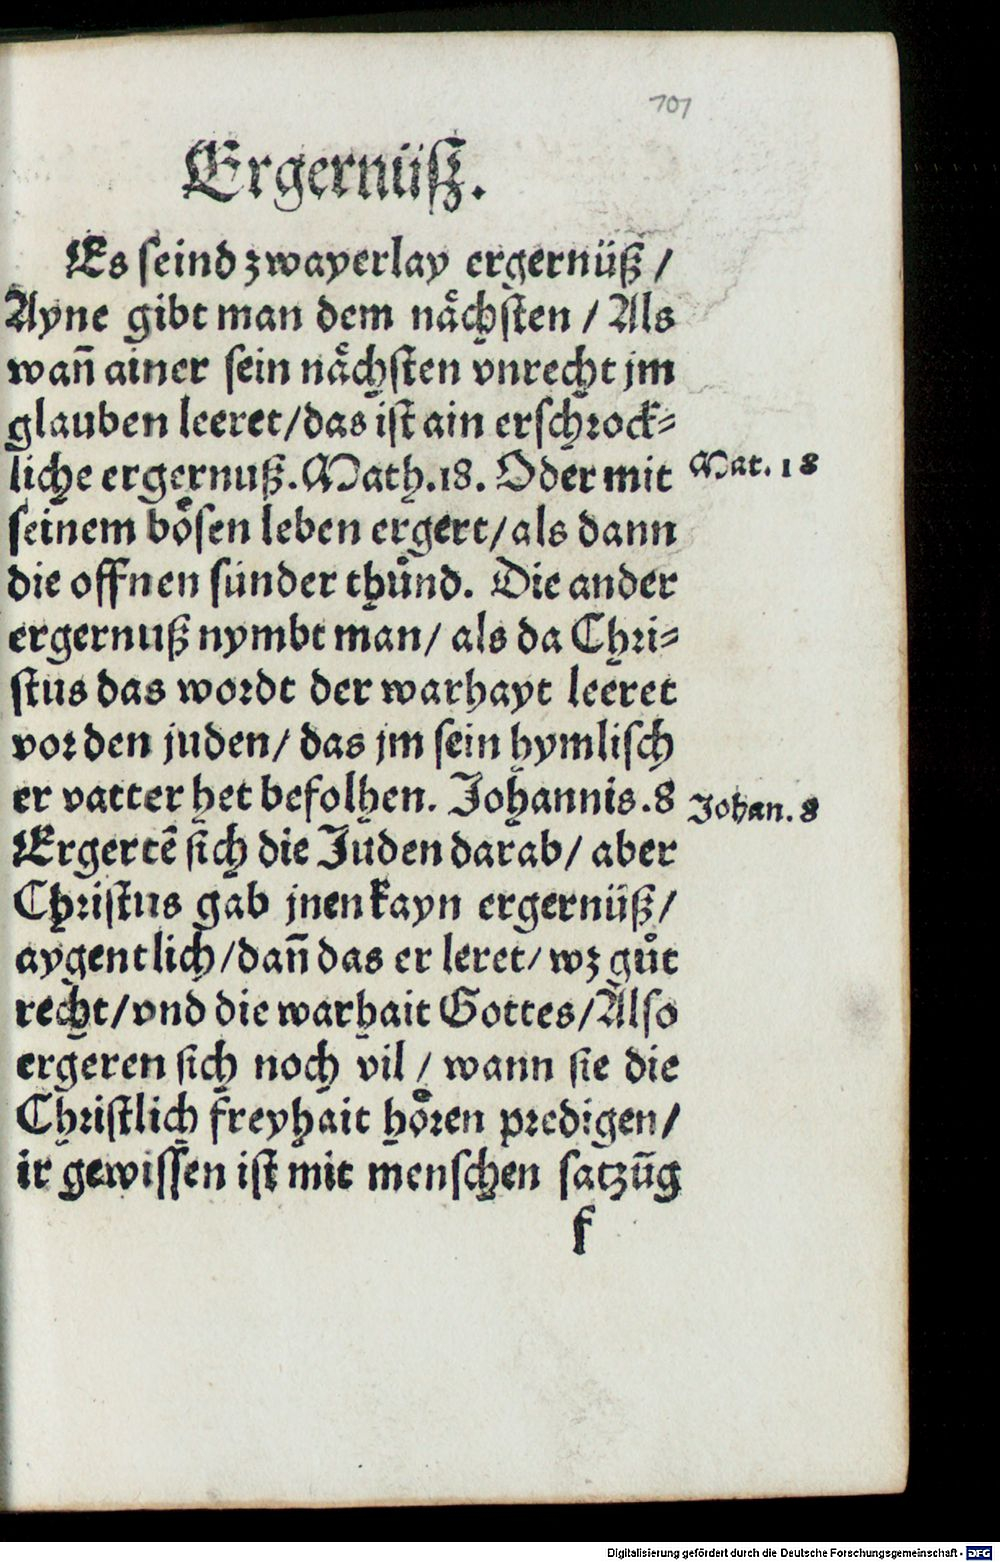 701
Ergernüß.
Es seind zwayerlay ergernüß /
Ayne gibt man dem nåchsten / Als
wañ ainer sein nåchsten vnrecht jm
glauben leeret/das ist ain erschrock⸗
liche ergernuß.Math.18. Oder mit
Mat. 18
seinem bősen leben ergert/als dann
die offnen sunder thůnd. Die ander
ergernuß nymbt man/ als da Chri⸗
stus das wordt der warhayt leeret
vor den juden/ das jm sein hymlisch
er vatter het befolhen. Johannis.8
Johan. 8
Ergertẽ sich die Juden darab/ aber
Christus gab jnen kayn ergernüß/
aygentlich/dañ das er leret/ wz gůt
recht/vnd die warhait Gottes/Also
ergeren sich noch vil / wann sie die
Christlich freyhait hören predigen/
ir gewissen ist mit menschen satzũg
f
Digitalisierung gefördert durch die Deutsche Forschungsgemeinschaft - DFG